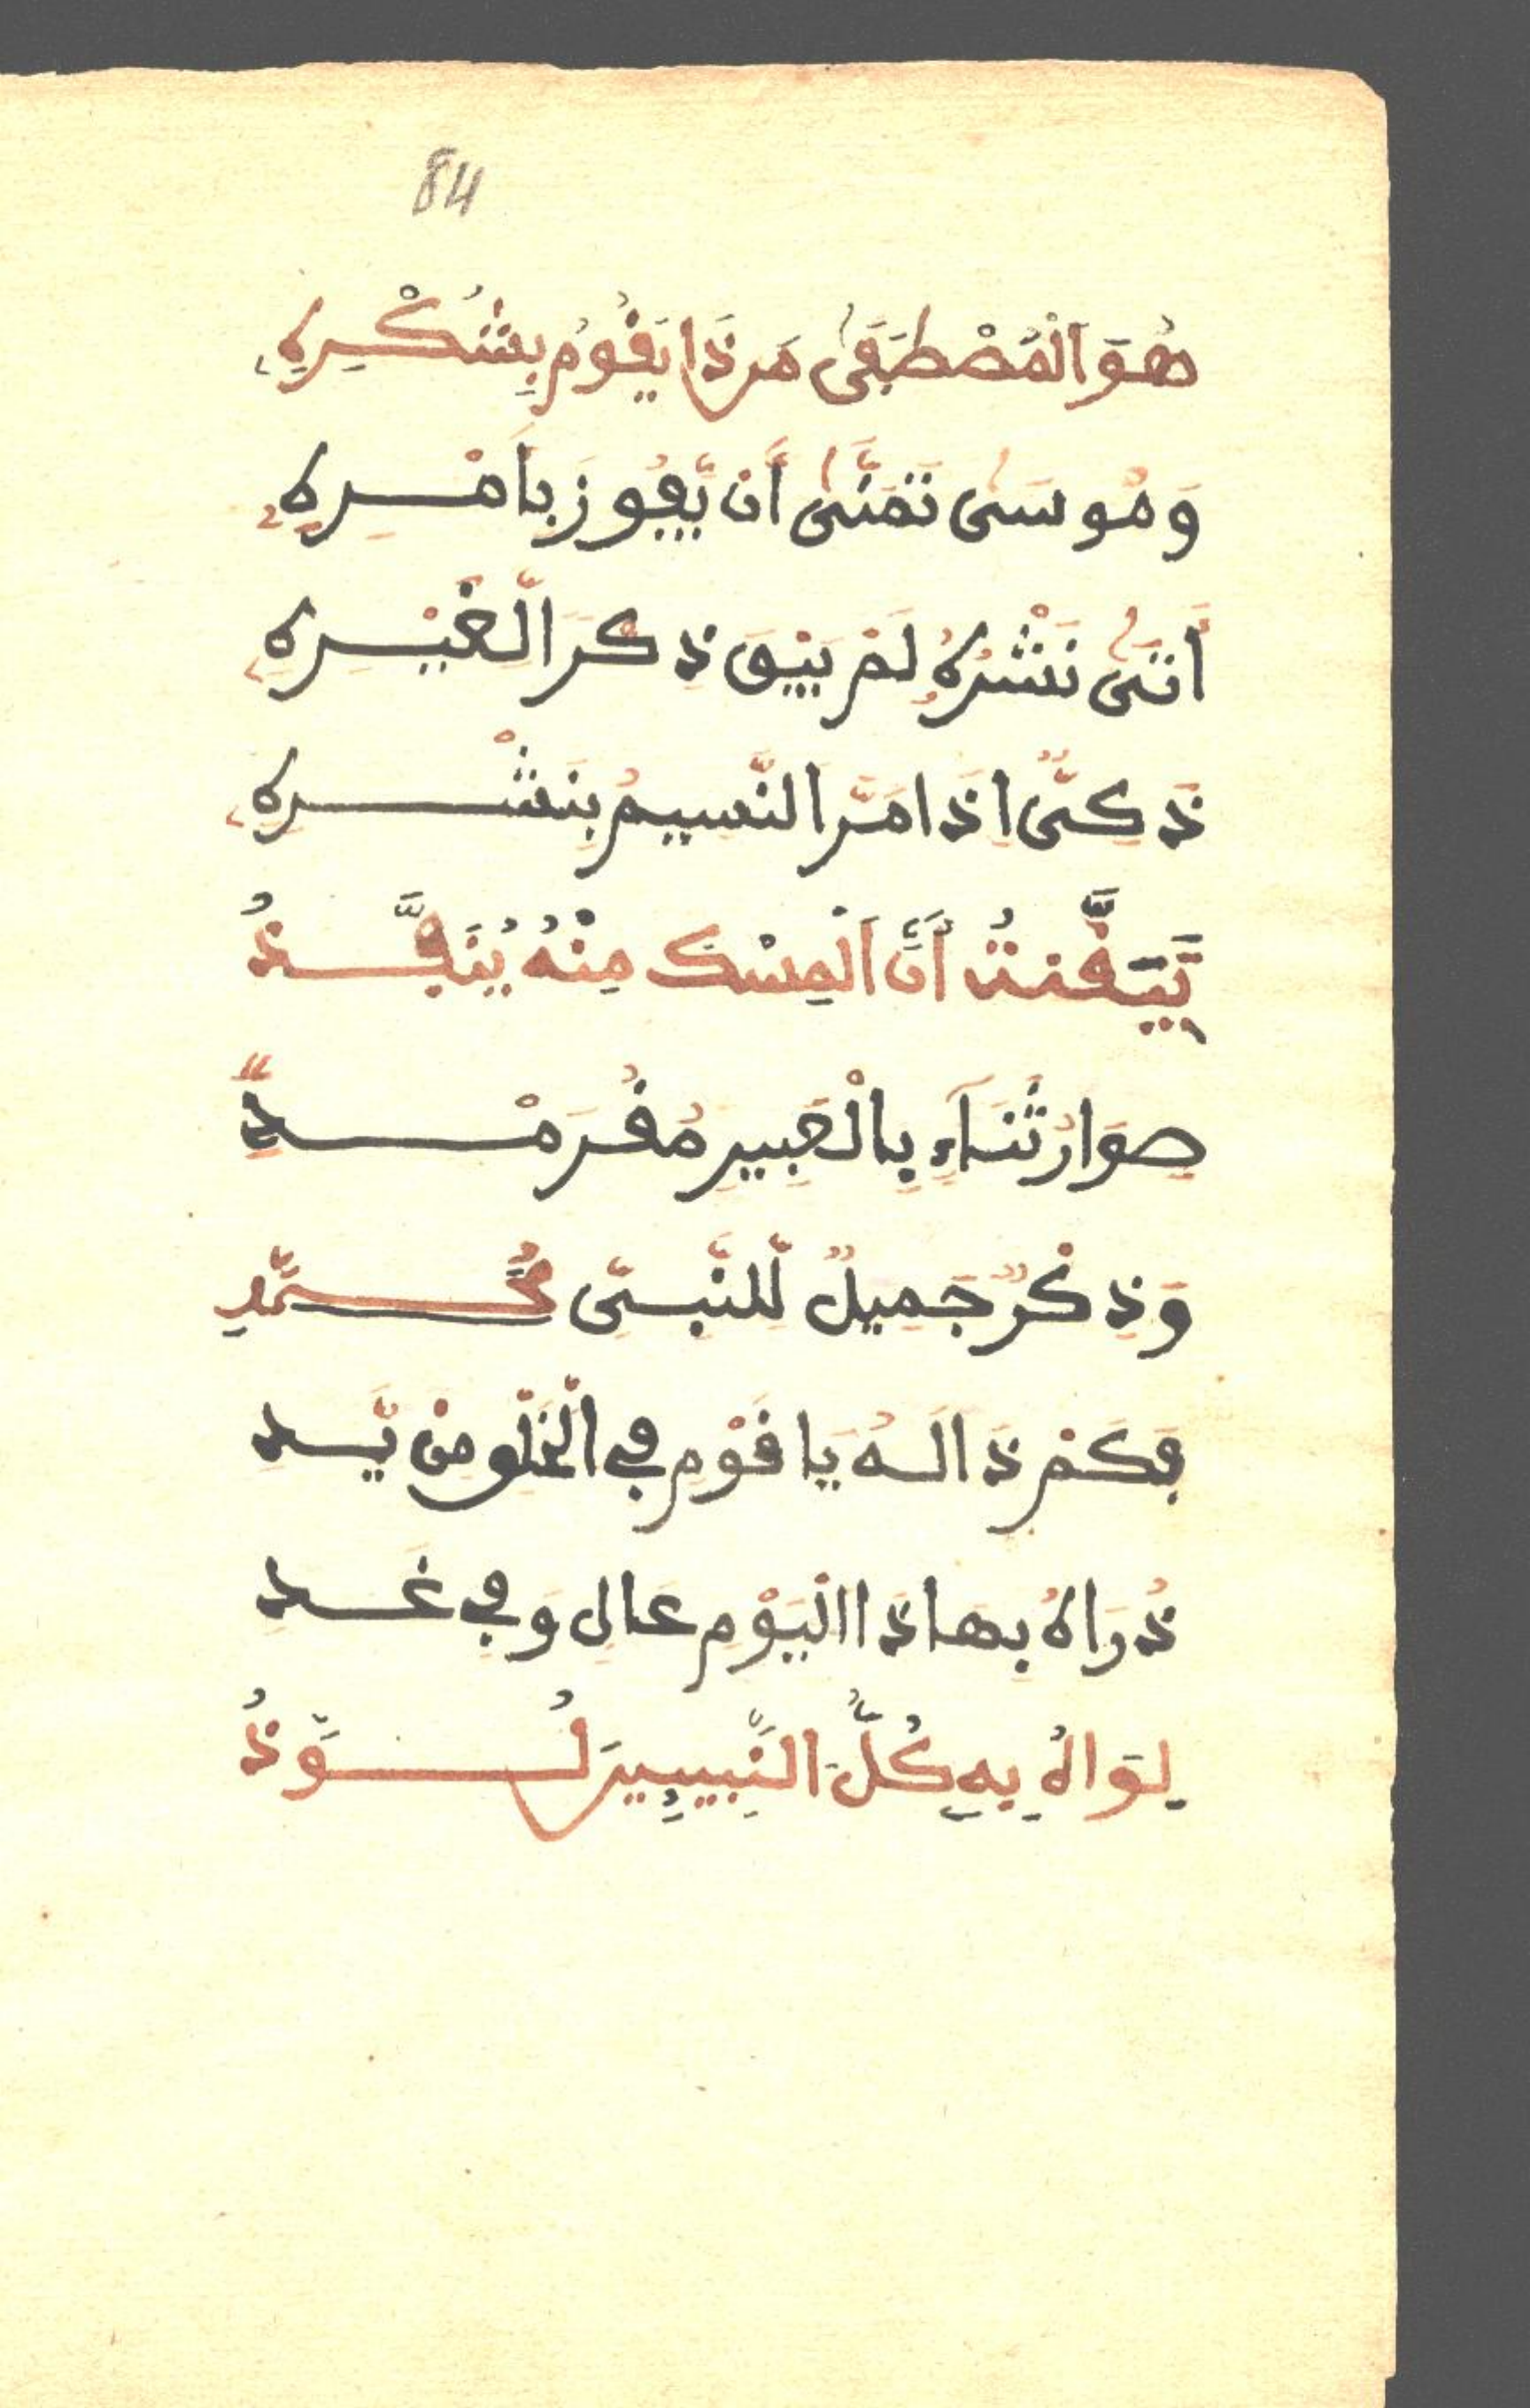 84
هُوَ اَلْمُصْطَفَى مَن ذَا يَقُومُ بِشُكْرِهِ
وَمُوسَى تَمَنَّى أَن يَّفُوزَ بِأَمْرِهِ
أَتَى نَشْرُهُ لَمْ يَبْقَ ذِكْرَ الِّغَيْرِهِ
ذَكِيٌّ اِذَا مَرَّ النَّسِيمُ بِنَشْرِهِ
تَيَقَّنتُ أَنَّ اَلْمِسْكَ مِنْهُ يُنَفَّذُ
صِوَارُ ثَنَاءٍ بِالْعَبِيرِ مُقَرْمَدٌ
وَذِكْرٌ جَمِيلٌ لِّلنَّبِيِّ مُحَمَّدِ
فَكَمْ ذَا لَهُ يَا قَوْمِ فِي الْخَلْقِ مِنْ يَّدِ
ذُرَاهُ بِهَاذَا الْيَوْمِ عَالٍ وَفِي غَدِ
لِوَاهُ بِهِ كُلُّ النَّبِيِيِنَ لُوَّذُ